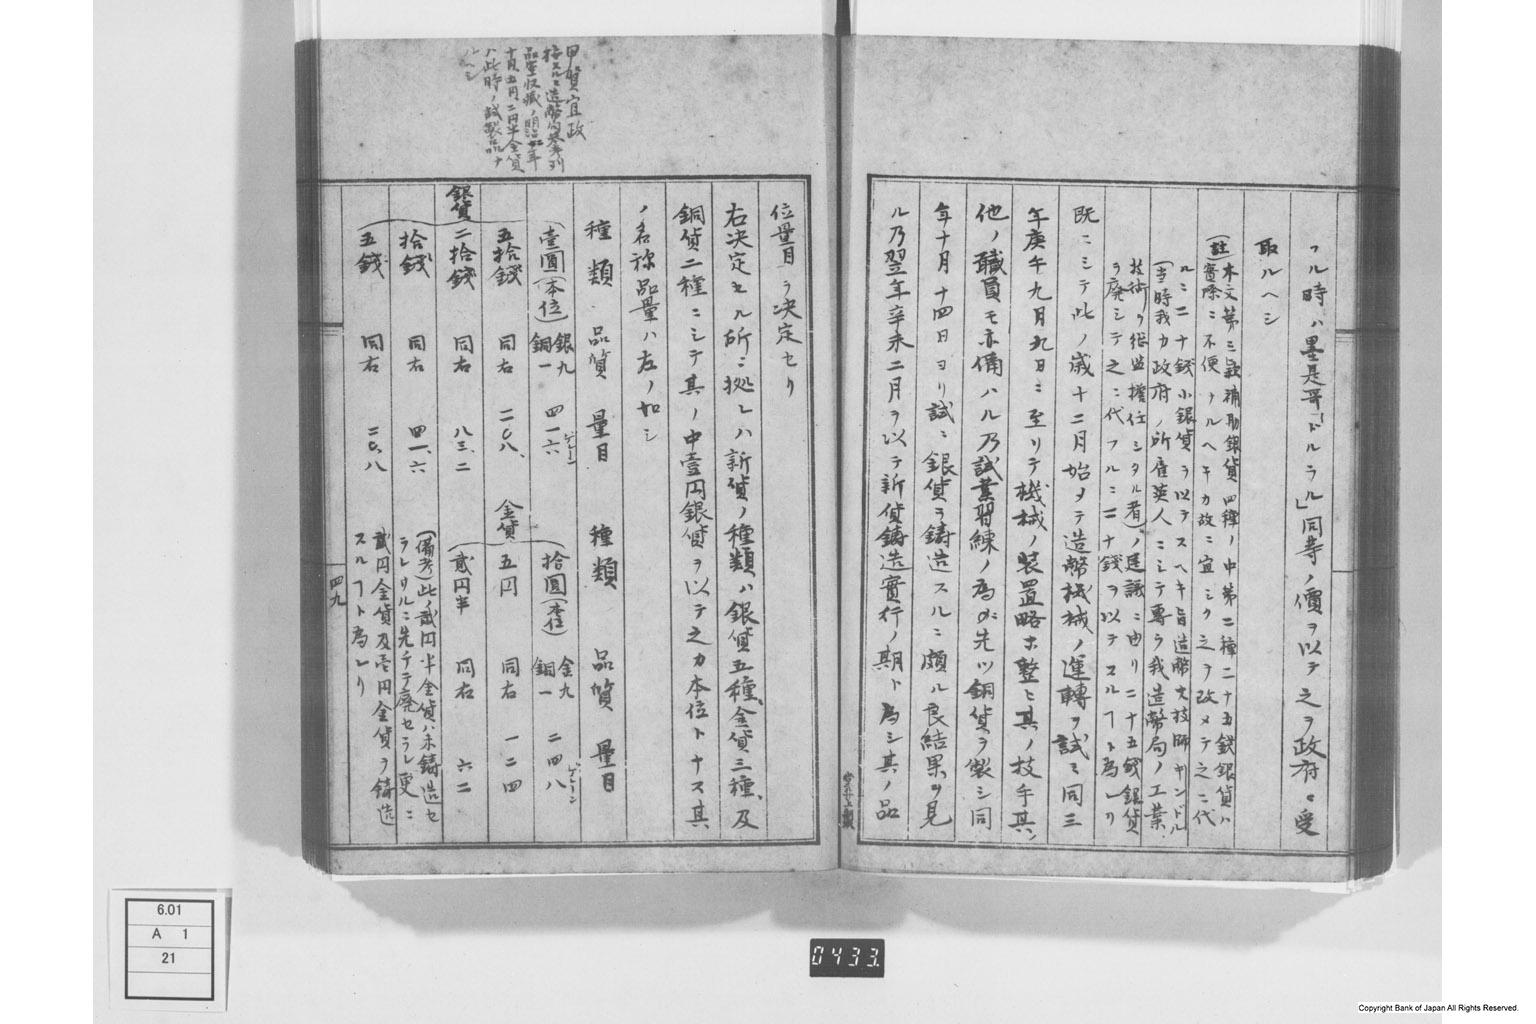 フル時ハ墨是哥「ドルラル」同等ノ價ヲ以テ之ヲ政府ヘ受
取ルヘシ
(註)本文第三款補助銀貨四種ノ中第二種二十五錢銀貨ハ
實際ニ不便ナルヘキカ故ニ宜シク之ヲ改メテ之ニ代
ルニ二十錢小銀貨ヲ以テスヘキ旨造幣大技師キンドル
(当時我カ政府ノ所雇英人ニシテ專ラ我造幣局ノ工業、
技術ヲ總監擔任シタル者)ノ建議ニ由リ二十五錢銀貨
ヲ廃シテ之ニ代フルニ二十錢ヲ以テスルヿト為レリ
既ニシテ此ノ歳十二月始メテ造幣機械ノ運轉ヲ試ミ同三
年庚午九月九日ニ至リテ機械ノ装置略ホ整ヒ其ノ技手其ノ
他ノ職員モ亦備ハル乃試業習練ノ為メ先ツ銅貨ヲ製シ同
年十月十四日ヨリ試ニ銀貨ヲ鋳造スルニ頗ル良結果ヲ見
ル乃翌年辛未二月ヲ以テ新貨鋳造實行ノ期ト為シ其ノ品
位量目ヲ决定セリ
右决定セル所ニ拠レハ新貨ノ種類ハ銀貨五種、金貨三種、及
銅貨二種ニシテ其ノ中壹円銀貨ヲ以テ之カ本位トナス其
ノ名称品量ハ左ノ如シ
種類 品質 量目 種類 品質 量目
壹圓(本位) 銀九 銅一 四一六 ゲレーン 拾圓(本位) 金九 銅一 二四八 ゲレーン
五拾錢 同右 二〇八、 金貨 五円 同右 一二四
銀貨 二拾錢 同右 八三、二 貳円半 同右 六二
拾錢 同右 四一、六 (備考)此ノ貳円半金貨ハ未鋳造セ
ラレサルニ先チテ廃セラレ更ニ
五錢 同右 二〇、八 貳円金貨及壱円金貨ヲ鋳造
スルヿト為レリ
四九
甲賀宜政
造幣局
品室收藏ノ明治三年
十月五円、二円半金貨
ハ此時ノ試製品ナ
ルヘシ
6.01
A 1
21
0433
Copyright Bank of Japan All Rights Reserved.